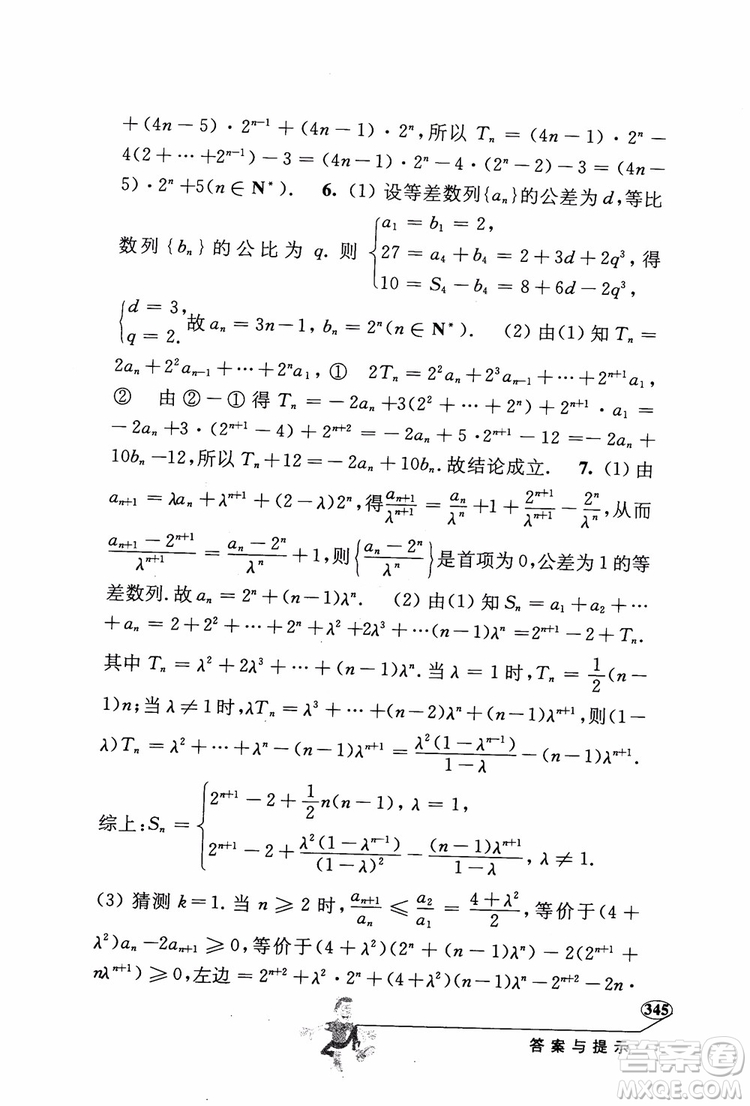 +(4n-5)·2^{n-1}+(4n-1)·2^n,所以 T_n=(4n-1)·2^n-
4(2+⋯+2^{n-1})-3=(4n-1)·2^n-4·(2^n-2)-3=(4n-
5)·2^n+5(n∈N*). 6. (1) 设等差数列{a_n}的公差为 d,等比
数列{b_n}的公比为 q. 则 {a_1=b_1=2,
27=a_4+b_4=2+3d+2q^3,得
10=S_4-b_4=8+6d-2q^3,
{d=3,
q=2. 故 a_n=3n-1,b_n=2^n(n∈N*). (2) 由(1) 知 T_n=
2a_n+2^2a_{n-1}+⋯+2^na_1, ① 2T_n=2^2a_n+2^3a_{n-1}+⋯+2^{n+1}a_1,
② 由②-①得 T_n=-2a_n+3(2^2+⋯+2^n)+2^{n+1}·a_1=
-2a_n+3·(2^{n+1}-4)+2^{n+2}=-2a_n+5·2^{n+1}-12=-2a_n+
10b_n-12,所以 T_n+12=-2a_n+10b_n.故结论成立. 7. (1) 由
a_{n+1}=λa_n+λ^{n+1}+(2-λ)2^n,得\frac{a_{n+1}}{λ^{n+1}}=\frac{a_n}{λ^n}+1+\frac{2^{n+1}}{λ^{n+1}}-\frac{2^n}{λ^n},从而
\frac{a_{n+1}-2^{n+1}}{λ^{n+1}}=\frac{a_n-2^n}{λ^n}+1,则{\frac{a_n-2^n}{λ^n}}是首项为 0,公差为 1 的等
差数列.故 a_n=2^n+(n-1)λ^n. (2) 由(1)知 S_n=a_1+a_2+⋯
+a_n=2+2^2+⋯+2^n+λ^2+2λ^3+⋯+(n-1)λ^n=2^{n+1}-2+T_n.
其中 T_n=λ^2+2λ^3+⋯+(n-1)λ^n.当 λ=1 时,T_n=\frac{1}{2}(n-
1)n;当 λ≠1 时,λT_n=λ^3+⋯+(n-2)λ^n+(n-1)λ^{n+1},则(1-
λ)T_n=λ^2+⋯+λ^n-(n-1)λ^{n+1}=\frac{λ^2(1-λ^{n-1})}{1-λ}-(n-1)λ^{n+1}.
综上:S_n={2^{n+1}-2+\frac{1}{2}n(n-1),λ=1,
2^{n+1}-2+\frac{λ^2(1-λ^{n-1})}{(1-λ)^2}-\frac{(n-1)λ^{n+1}}{1-λ},λ≠1.
(3) 猜测 k=1.当 n≥2 时,\frac{a_{n+1}}{a_n}≤\frac{a_2}{a_1}=\frac{4+λ^2}{2},等价于(4+
λ^2)a_n-2a_{n+1}≥0,等价于(4+λ^2)(2^n+(n-1)λ^n)-2(2^{n+1}+
nλ^{n+1})≥0,左边=2^{n+2}+λ^2·2^n+(4+λ^2)(n-1)λ^n-2n·
345
答案与提示
答案圈
MXQE.COM